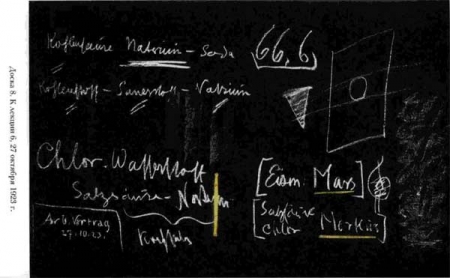 Доска 8. К лекции 6, 27 октября 1923 г.
Kohlensäure Natrium – Soda
66,6
Kohlenstoff – Sauerstoff – Natrium
Chlor. Wasserstoff
Salzsäure – Natrium
Kochsalz
Arb. Vortrag
27.10.23.
[Eisen Mars]
[Salzsäure
Chlor Merkur]